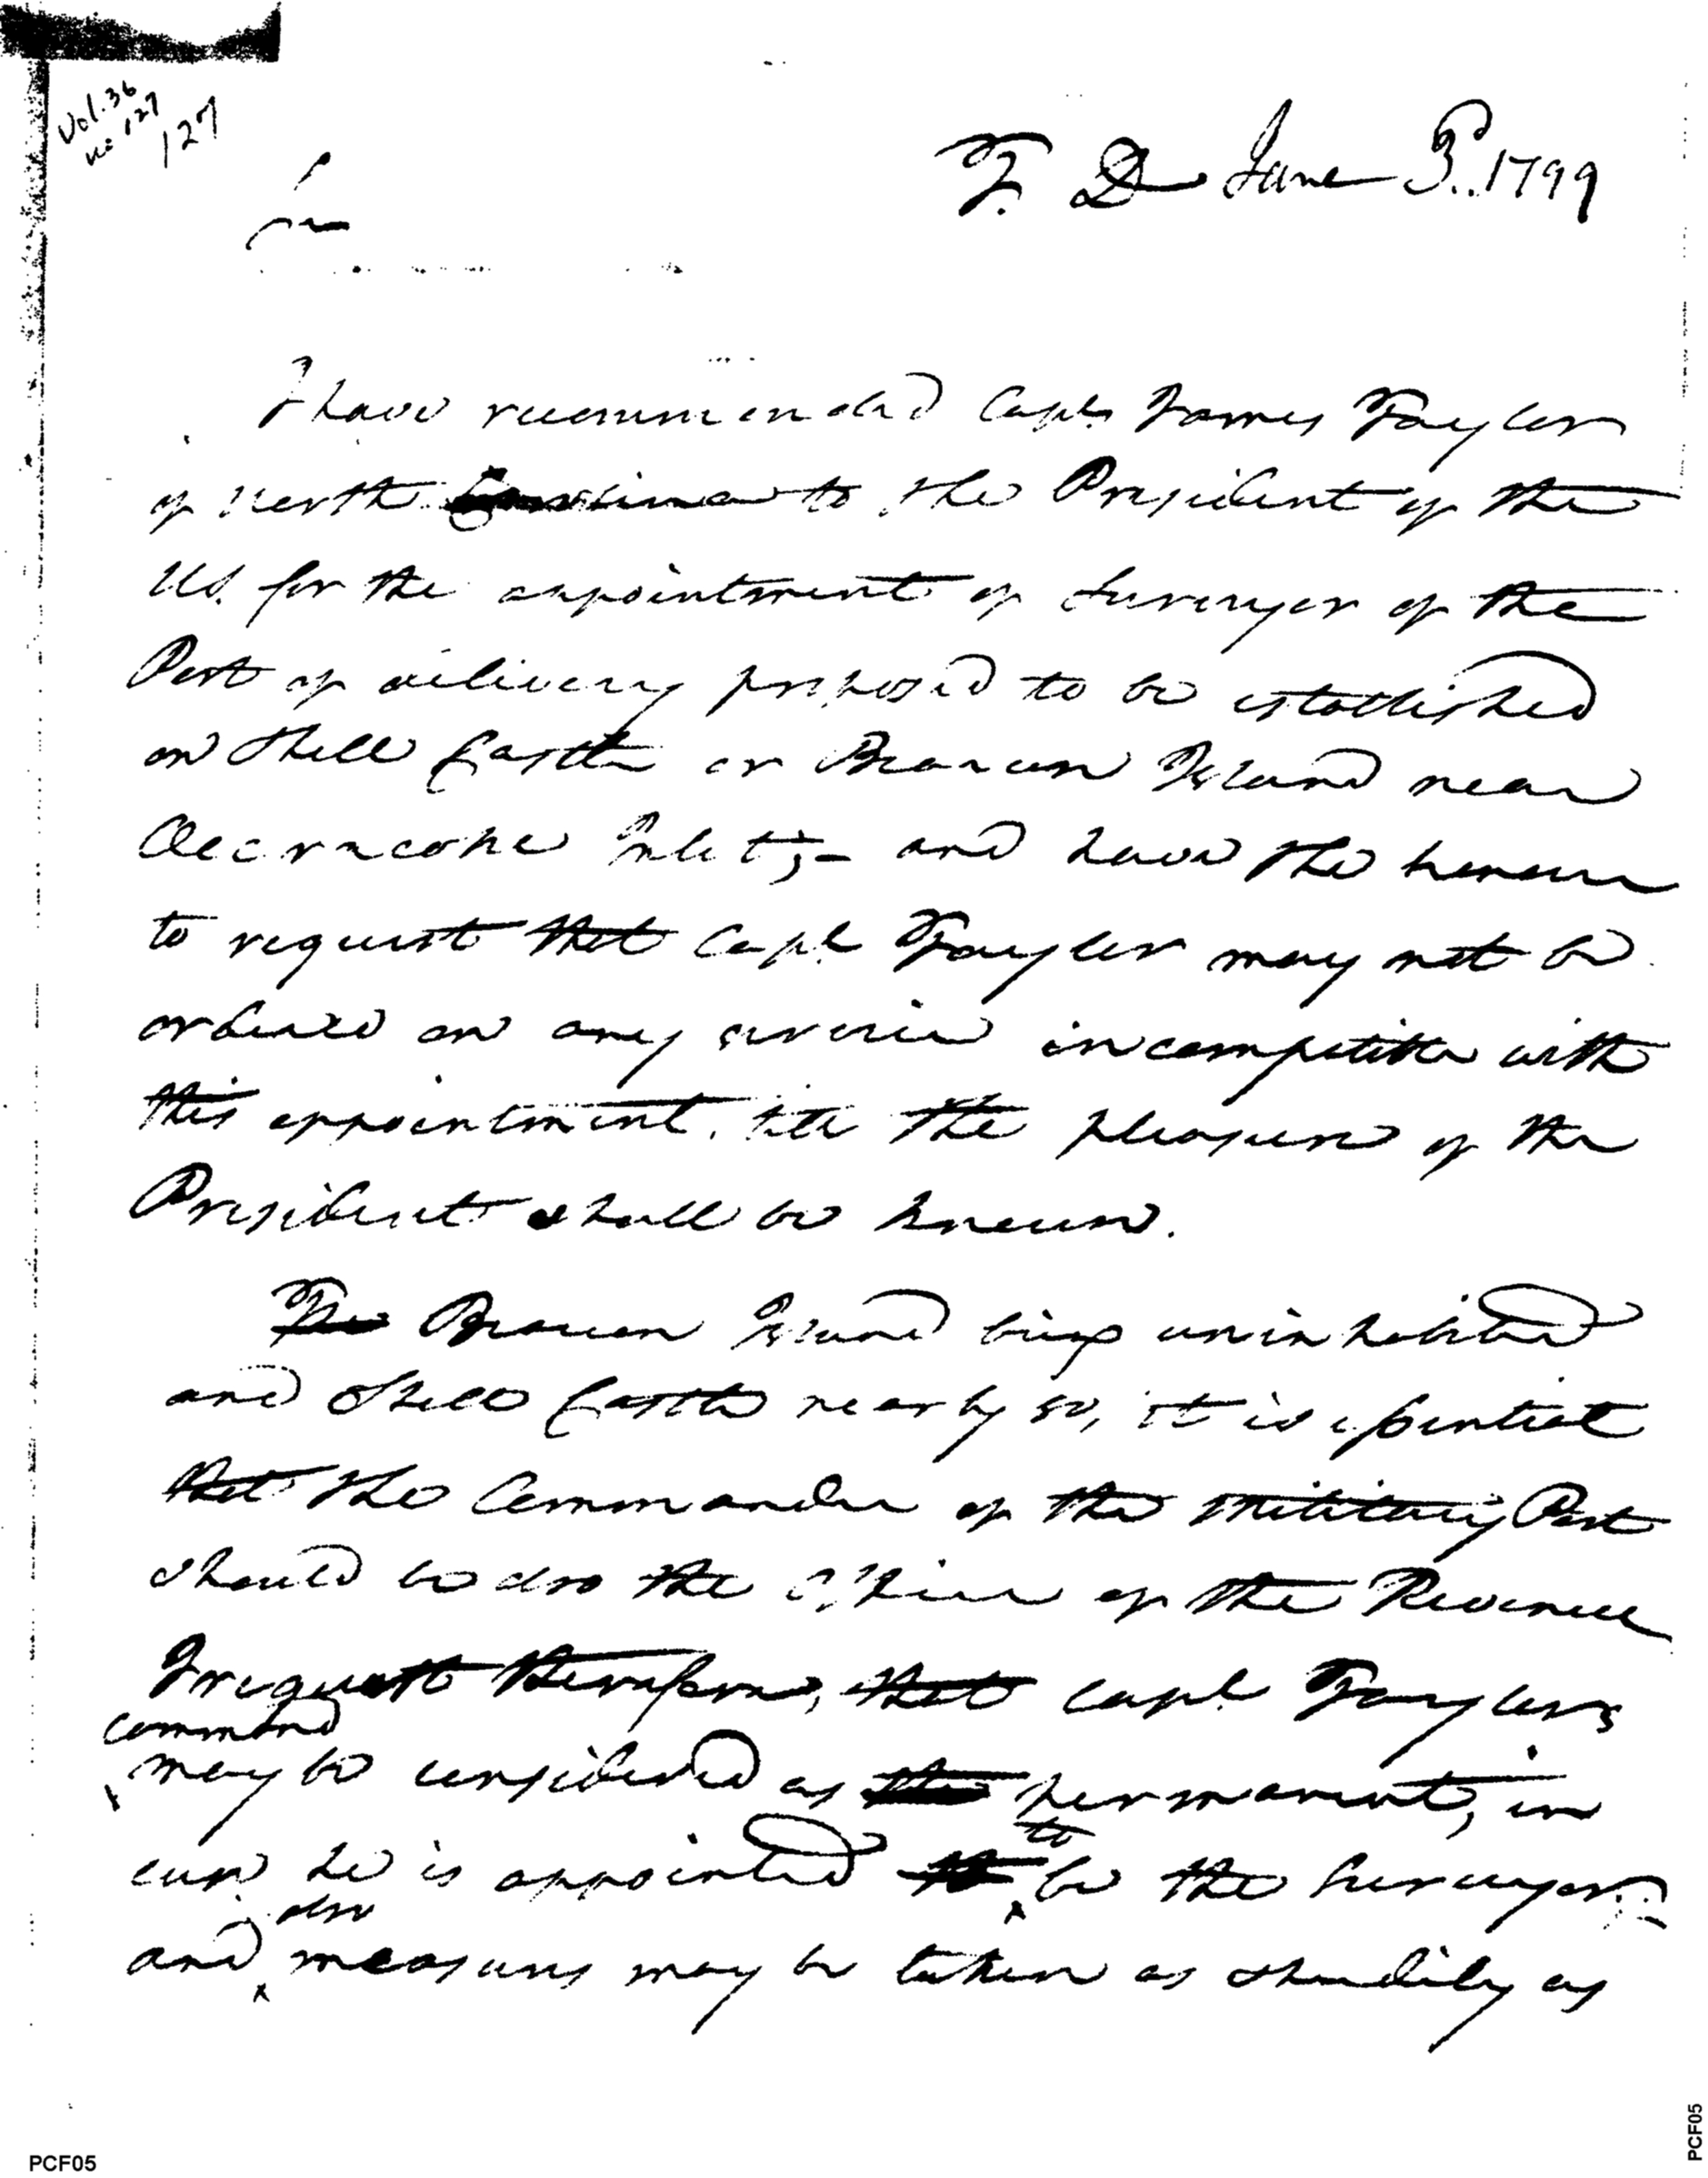 Vol. 36
no 127
127
T. D June 3. 1799
Sir
I have recommended Capt. James Taylor
of North Carolina to the President of the
US. for the appointment of Surveyor of the
Port of delivery proposed to be established
on Shell Castle or Beacon Island near
Occracoke Inlet;– and have the honour
to request that Capt Taylor may not be
ordered on any service incompatible with
this appointment, till the pleasure of the
President shall be known.
The Beacon Island being uninhabited
and Shell Castle nearly so, it is essential
that the Commander of the Military Post
should be also the Officer of the Revenue
I request therefore, that Capt Taylors
command
may be considered as permanent, in
case he is appointed to be the Surveyor
also
and measures may be taken as speedily as
PCF05
PCF05